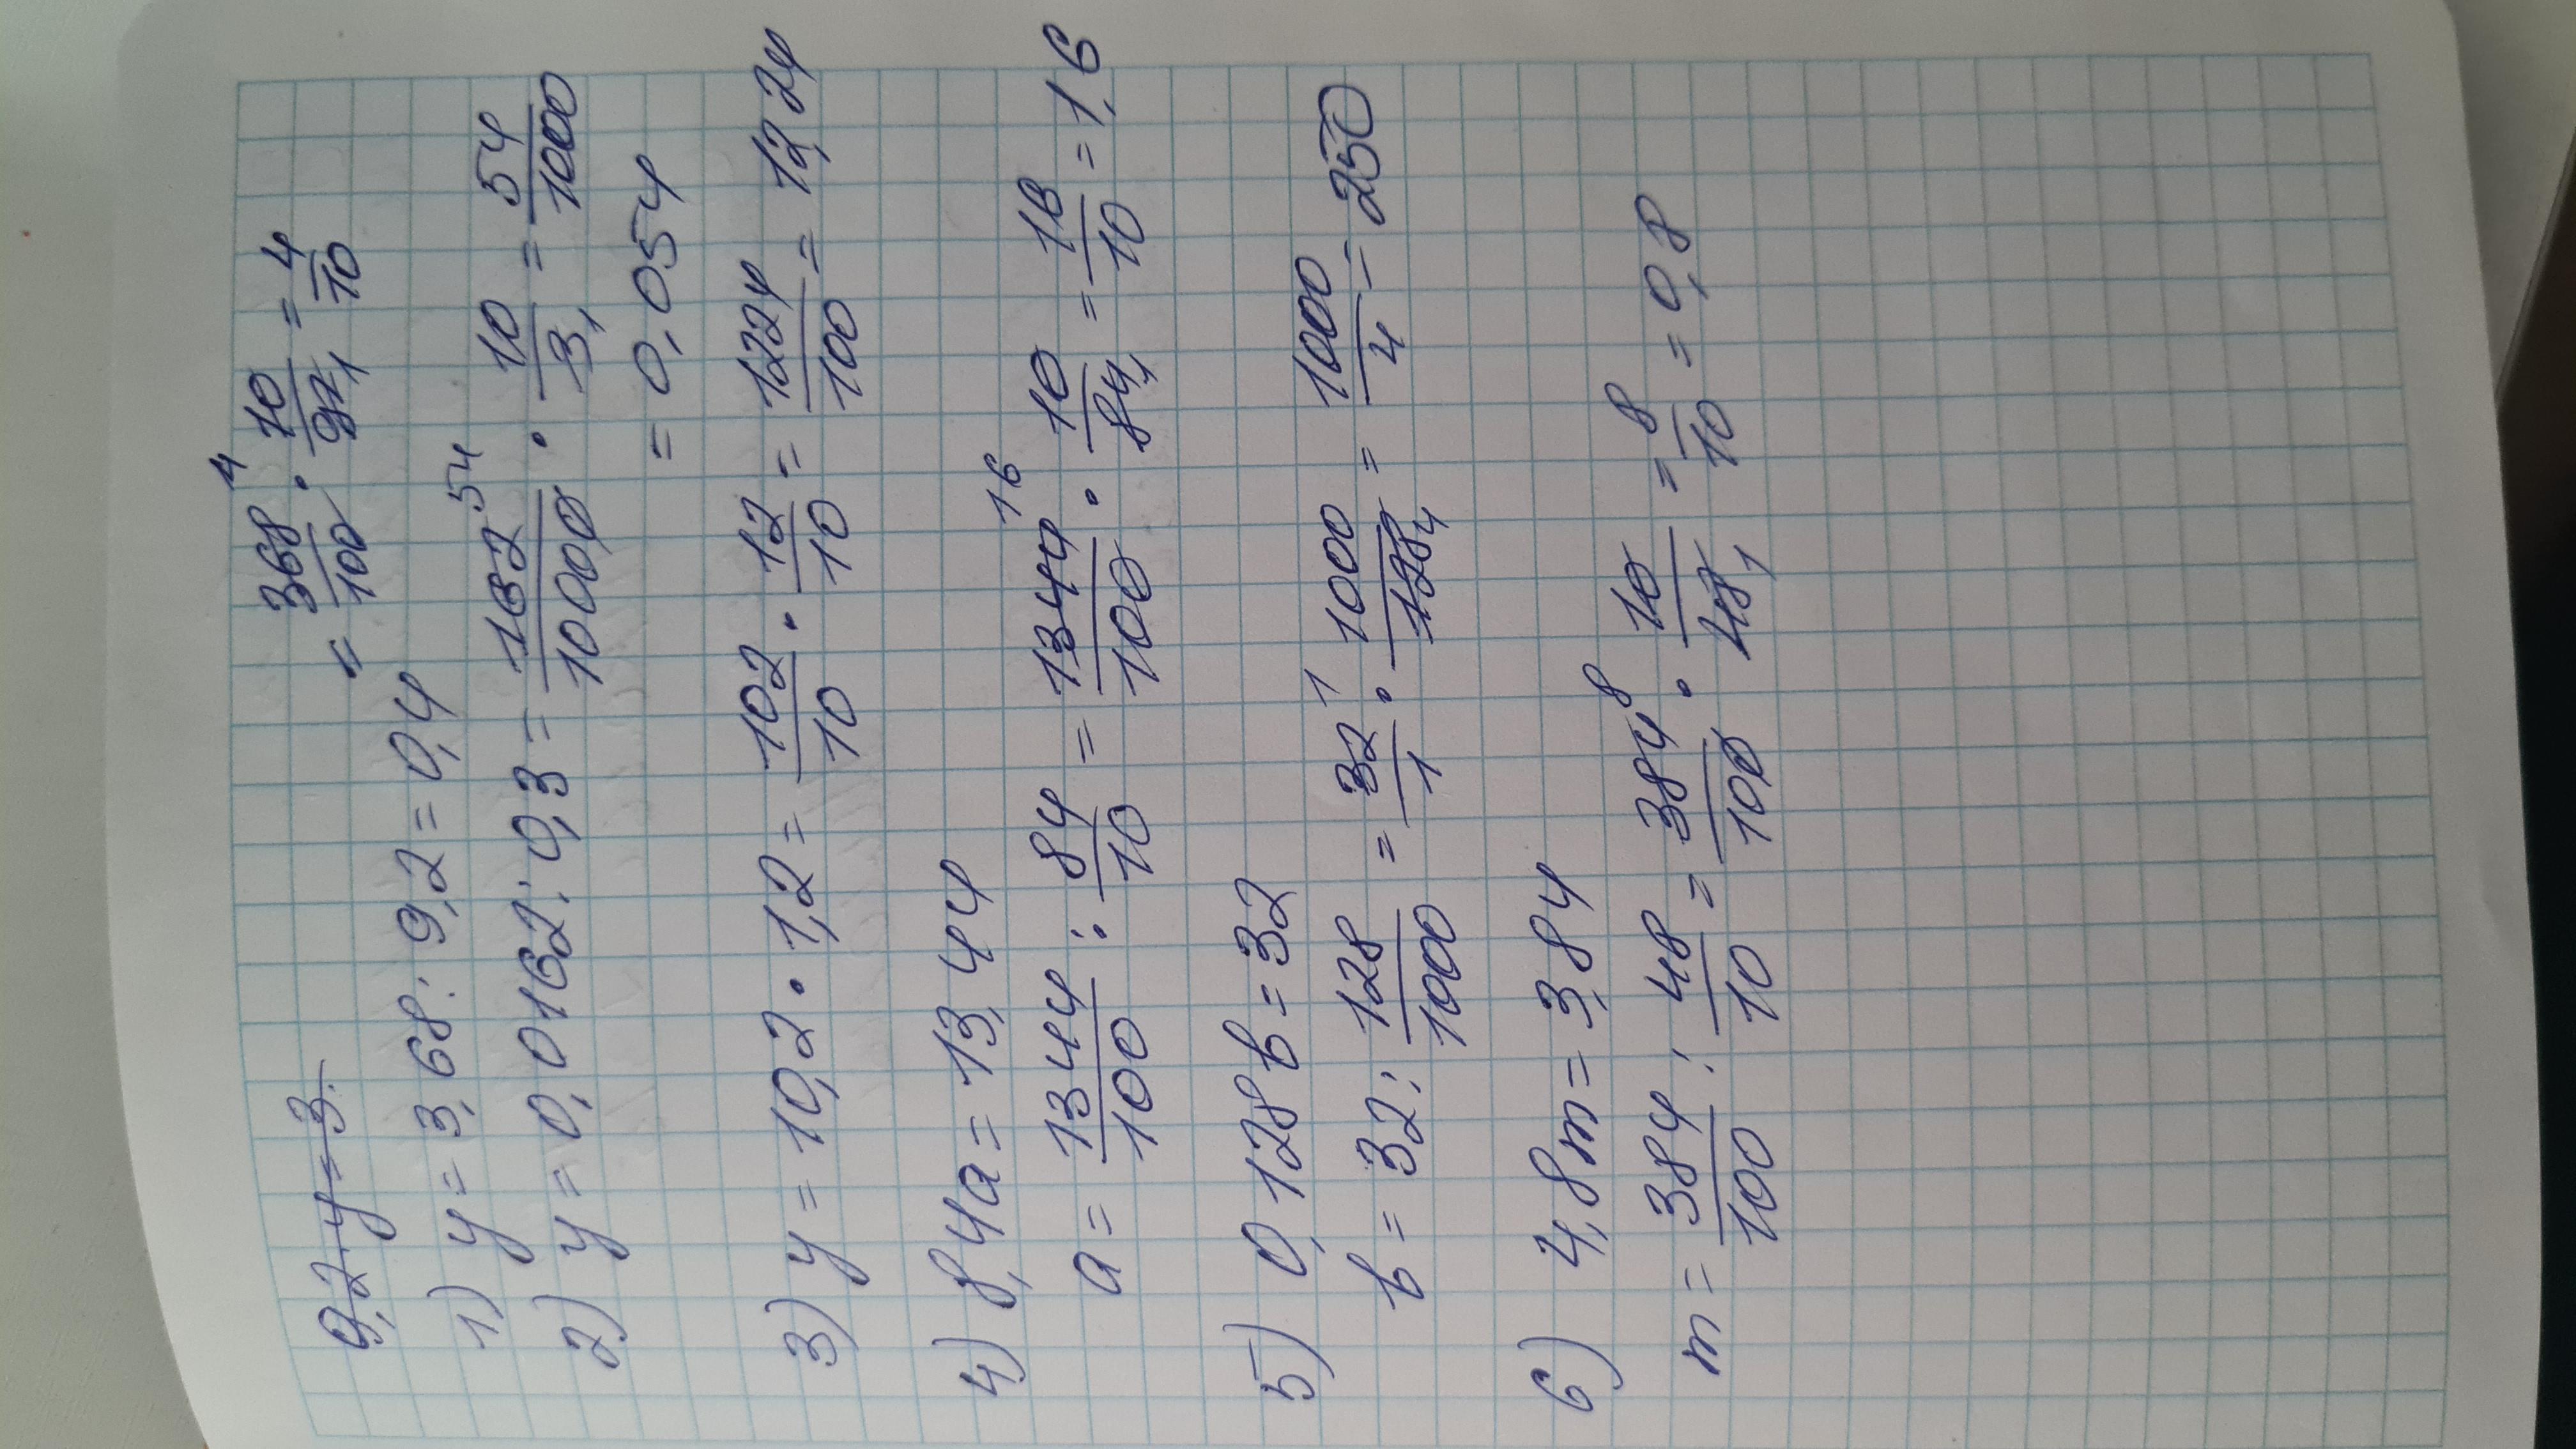 9,2·y=3.
= 368/100 4 · 10/92 1 = 4/10
1) y = 3,68 : 9,2 = 0,4
2) y = 0,0162 : 0,3 = 162/10000 54 · 10/3 1 = 54/1000
= 0,054
3) y = 10,2 · 1,2 = 102/10 · 12/10 = 1224/100 = 12,24
4) 8,4a = 13,44
a = 1344/100 : 84/10 = 1344/100 16 · 10/84 1 = 16/10 = 1,6
5) 0,128b = 32
b = 32 : 128/1000 = 32/1 1 · 1000/128 4 = 1000/4 = 250
6) 4,8m = 3,84
m = 384/100 : 48/10 = 384/100 8 · 10/48 1 = 8/10 = 0,8